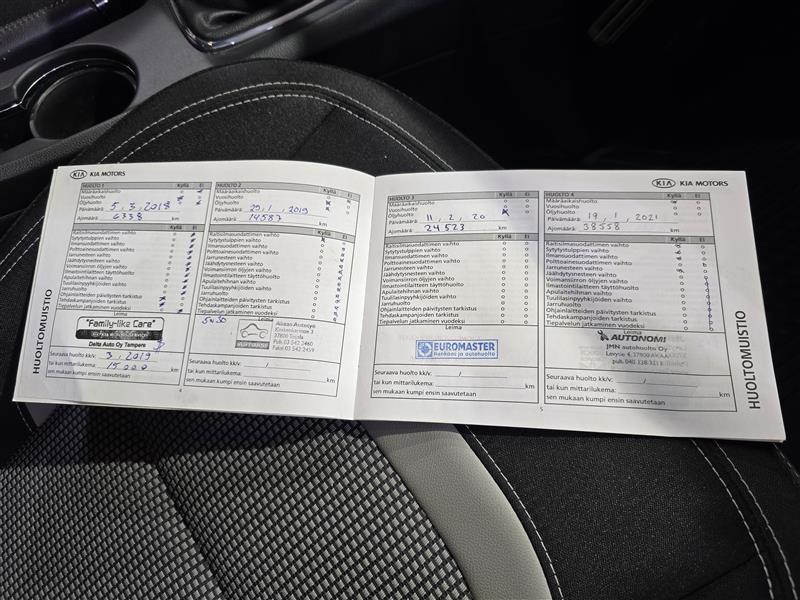 KIA KIA MOTORS
HUOLTO 1 Kyllä Ei
Määräaikaishuolto
Vuosihuolto
Öljyhuolto
Päivämäärä: 5, 3, 2018
Ajomäärä: 6338 km
Raitisilmasuodattimen vaihto
Sytytystulppien vaihto
Ilmansuodattimen vaihto
Polttoainesuodattimen vaihto
Jarrunesteen vaihto
Jäähdytysnesteen vaihto
Voimansiirron öljyjen vaihto
Ilmastointilaitteen täyttöhuolto
Apulaitehihnan vaihto
Tuulilasinpyyhkijöiden vaihto
Jarruhuolto
Ohjainlaitteiden päivitysten tarkistus
Tehdaskampanjoiden tarkistus
Tiepalvelun jatkaminen vuodeksi
Leima
"Family-like Care"
Delta Auto Oy Tampere
Seuraava huolto kk/v: 3, 2019
tai kun mittarilukema: 15 000 km
sen mukaan kumpi ensin saavutetaan
4
HUOLTOMUISTIO
HUOLTO 2 Kyllä Ei
Määräaikaishuolto
Vuosihuolto
Öljyhuolto
Päivämäärä: 29, 1, 2019
Ajomäärä: 14587 km
Raitisilmasuodattimen vaihto
Sytytystulppien vaihto
Ilmansuodattimen vaihto
Polttoainesuodattimen vaihto
Jarrunesteen vaihto
Jäähdytysnesteen vaihto
Voimansiirron öljyjen vaihto
Ilmastointilaitteen täyttöhuolto
Apulaitehihnan vaihto
Tuulilasinpyyhkijöiden vaihto
Jarruhuolto
Ohjainlaitteiden päivitysten tarkistus
Tehdaskampanjoiden tarkistus
Tiepalvelun jatkaminen vuodeksi
5W30 Leima
37800 Toijala
Puh. 03 542 2460
Faksi 03 542 2459
Seuraava huolto kk/v: /
tai kun mittarilukema: km
sen mukaan kumpi ensin saavutetaan
HUOLTO 3 Kyllä Ei
Määräaikaishuolto
Vuosihuolto
Öljyhuolto
Päivämäärä: 11, 2, 20
Ajomäärä: 24523 km
Raitisilmasuodattimen vaihto
Sytytystulppien vaihto
Ilmansuodattimen vaihto
Polttoainesuodattimen vaihto
Jarrunesteen vaihto
Jäähdytysnesteen vaihto
Voimansiirron öljyjen vaihto
Ilmastointilaitteen täyttöhuolto
Apulaitehihnan vaihto
Tuulilasinpyyhkijöiden vaihto
Jarruhuolto
Ohjainlaitteiden päivitysten tarkistus
Tehdaskampanjoiden tarkistus
Tiepalvelun jatkaminen vuodeksi
Leima
EUROMASTER
Renkaas ja autohuolto
Seuraava huolto kk/v: /
tai kun mittarilukema: km
sen mukaan kumpi ensin saavutetaan
5
KIA KIA MOTORS
HUOLTO 4 Kyllä Ei
Määräaikaishuolto
Vuosihuolto
Öljyhuolto
Päivämäärä: 19, 1, 2021
Ajomäärä: 38558 km
Raitisilmasuodattimen vaihto
Sytytystulppien vaihto
Ilmansuodattimen vaihto
Polttoainesuodattimen vaihto
Jarrunesteen vaihto
Jäähdytysnesteen vaihto
Voimansiirron öljyjen vaihto
Ilmastointilaitteen täyttöhuolto
Apulaitehihnan vaihto
Tuulilasinpyyhkijöiden vaihto
Jarruhuolto
Ohjainlaitteiden päivitysten tarkistus
Tehdaskampanjoiden tarkistus
Tiepalvelun jatkaminen vuodeksi
Leima
AUTONOMI
JMN autohuolto Oy
Seuraava huolto kk/v: /
tai kun mittarilukema: km
sen mukaan kumpi ensin saavutetaan
HUOLTOMUISTIO